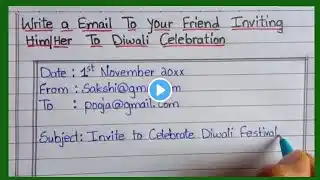 Write a Email To Your Friend Inviting
Him/Her To Diwali Celebration
Date : 1st November 20xx
From : Sakshi@gm
To : pooja@gmail.com
Subject: Invite to Celebrate Diwali Festival